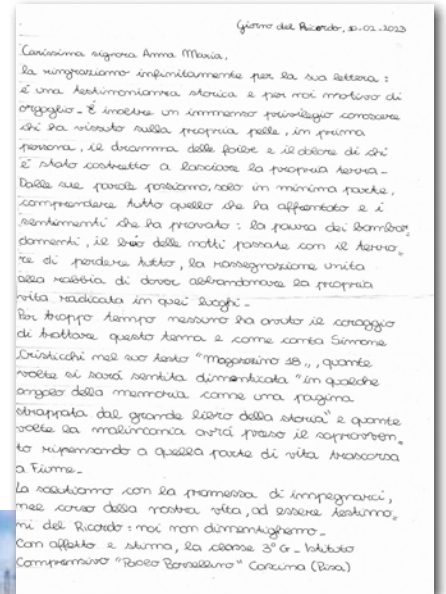 Giorno del Ricordo, 10-02-2023
Carissima signora Anna Maria,
la ringraziamo infinitamente per la sua lettera :
è una testimonianza storica e per noi motivo di
orgoglio - È inoltre un immenso privilegio conoscere
chi ha vissuto sulla propria pelle, in prima
persona, il dramma delle foibe e il dolore di chi
è stato costretto a lasciare la propria terra -
Dalle sue parole possiamo, solo in minima parte,
comprendere tutto quello che ha affrontato e i
sentimenti che ha provato : la paura dei bombar=
damenti, il buio delle notti passate con il terro=
re di perdere tutto, la rassegnazione unita
alla rabbia di dover abbandonare la propria
vita radicata in quei luoghi -
Per troppo tempo nessuno ha avuto il coraggio
di trattare questo tema e come canta Simone
Cristicchi nel suo testo "Magazzino 18", quante
volte si sarà sentita dimenticata "in qualche
angolo della memoria come una pagina
strappata dal grande libro della storia" e quante
volte la malinconia avrà preso il sopravven=
to ripensando a quella parte di vita trascorsa
a Fiume -
La salutiamo con la promessa di impegnarci,
nel corso della nostra vita, ad essere testimo=
ni del Ricordo : noi non dimentichiamo -
Con affetto e stima, la classe 3° G - Istituto
Comprensivo "Paolo Borsellino" Cascina (Pisa)